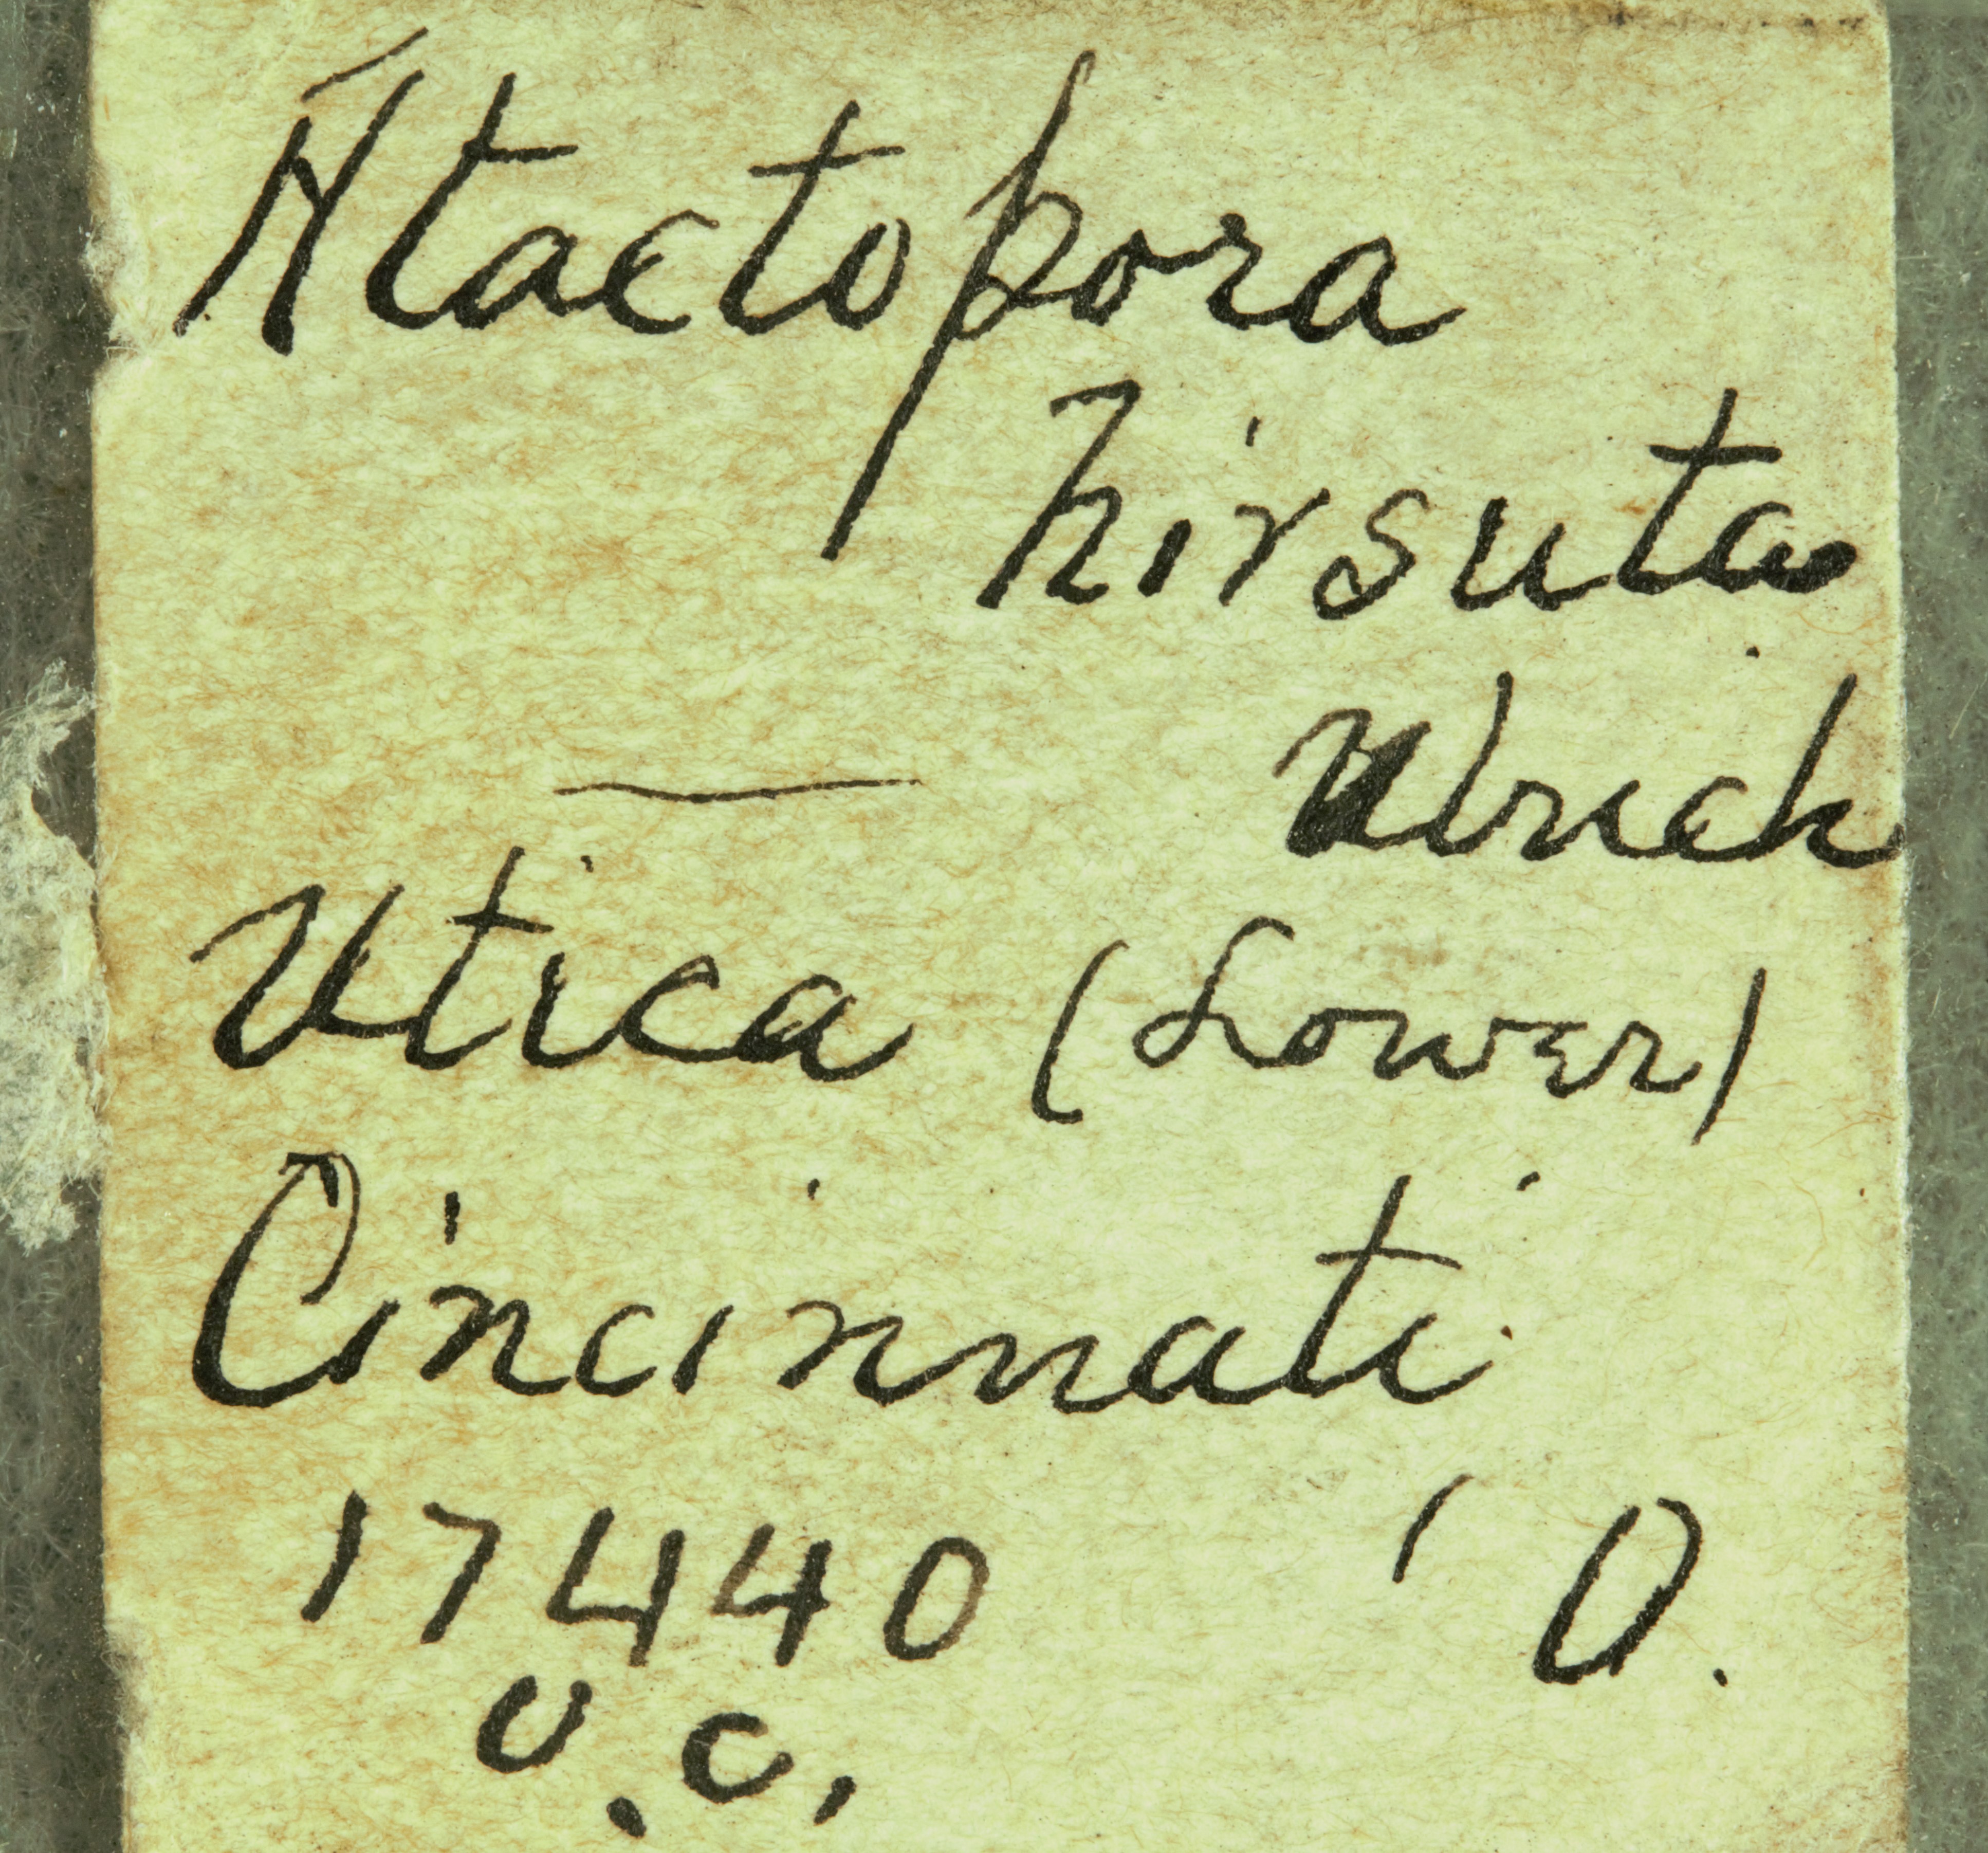 Atactopora
hirsuta
Ulrich
Utica (Lower)
Cincinnati
17440 ' O.
U.C.